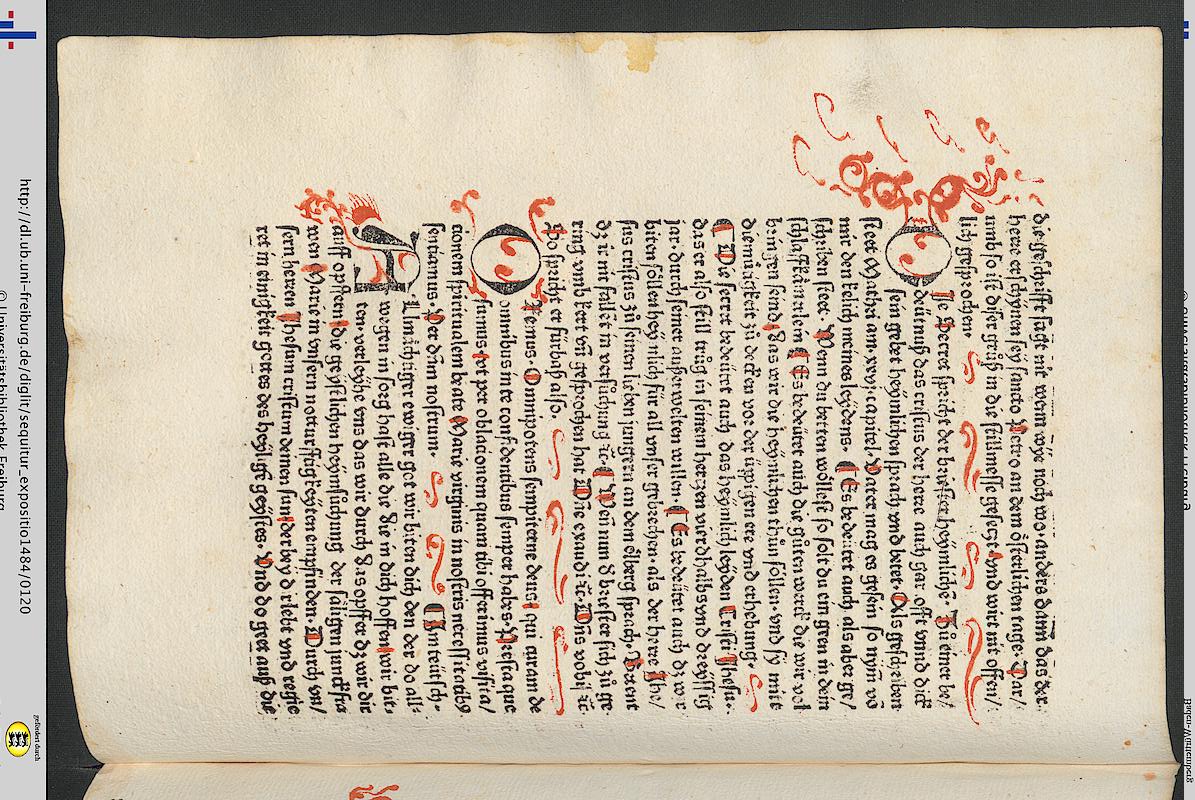 die geschrifft sagt nit wenn wye noch wo. anders dann das der
herre erschynen sey sancto Petro an dem österlichen tage. Dar/
umb so ist diser gruß in die stillmesse gesetzt. vnd wirt nit offen/
lich gesprochen.
DIe Secret spricht der briester heymliche. Zů einer be/
deütnuß das cristus der herre auch gar offt vnnd dick
sein gebet heymlichen sprach vnd betet. Als geschriben
steet Mathei am .xxvj. capitel Vater mag es gesein so nym vō
mir den kelich meines leydens. Es bedeütet auch als aber ge/
schriben steet. Wenn du betten wöllest so solt du ein geen in dein
schlaffkämerlein Es bedeütet auch die gůten werck die wir vol
bringen seind, das wir die heymlichen thůn söllen. vnd sy mitt
diemütigkeit zů decken vor der üppigen ere vnd erhebung.
Die secret bedeütet auch das heymlich leyden Cristi Jhesu.
das er also still trůg in seinem hertzen vierdhalbs vnd dreyssig
jar durch seiner außerwelten willen. Es bedeütet auch dz wir
biten söllen heymlich für all vnser gebrechen. als der herre Jhe/
sus cristus zů seinen lieben jungern an dem ölberg sprach. Betent
dz ir nit fallet in versůchung ꝛc. Wenn nun d briester sich zů ge
ring vmb kert vn̄ gesprochen hat Dn̄e exaudi ꝛc. Dn̄s vobiſ ꝛc.
So spricht er fürbaß also.
ORemus. Omnipotens sempiterne deus qui curam de
omnibus in te confidentibus semper habes. Presta que
sumus vt per oblacionem quam tibi offerimus visita/
cionem spiritualem beate Marie virginis in nostris necessitatibꝰ
senciamus. Per dn̄m nostrum. Jn teütsch.
ALlmächtiger ewiger got wir biten dich den der do all/
wegen in sorg hast alle die die in dich hoffen, wir bit
ten verleyhe vns das wir durch das opffer dz wir dir
auff opffern die geystlichen heymsůchung der säligen junckfra
wen Marie in vnsern notturfftigkeyten empfinden. Durch vn/
sern herren Jhesum cristum deinen sun der bey d lebt vnd regie
ret in einigkeit gottes des heylige geystes. Vnd do geet auß die
http://dl.ub.uni-freiburg.de/diglit/sequitur_expositio1484/0120
© Universitätsbibliothek Freiburg
gefördert durch